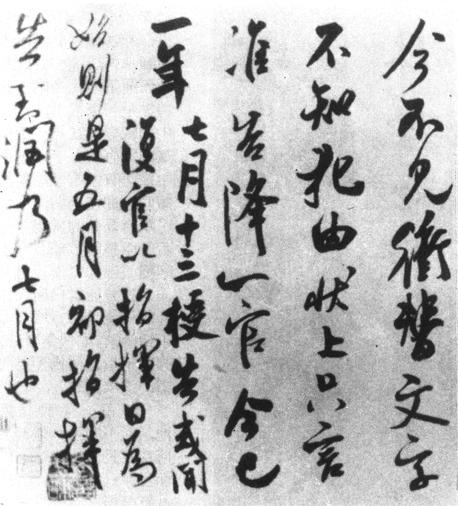 今不見衝替文字
不知犯由狀上只言
准告降一官今已
一年
七月十三授告或聞
復官以指揮日為
始則是五月指揮
告至潤乃七月也